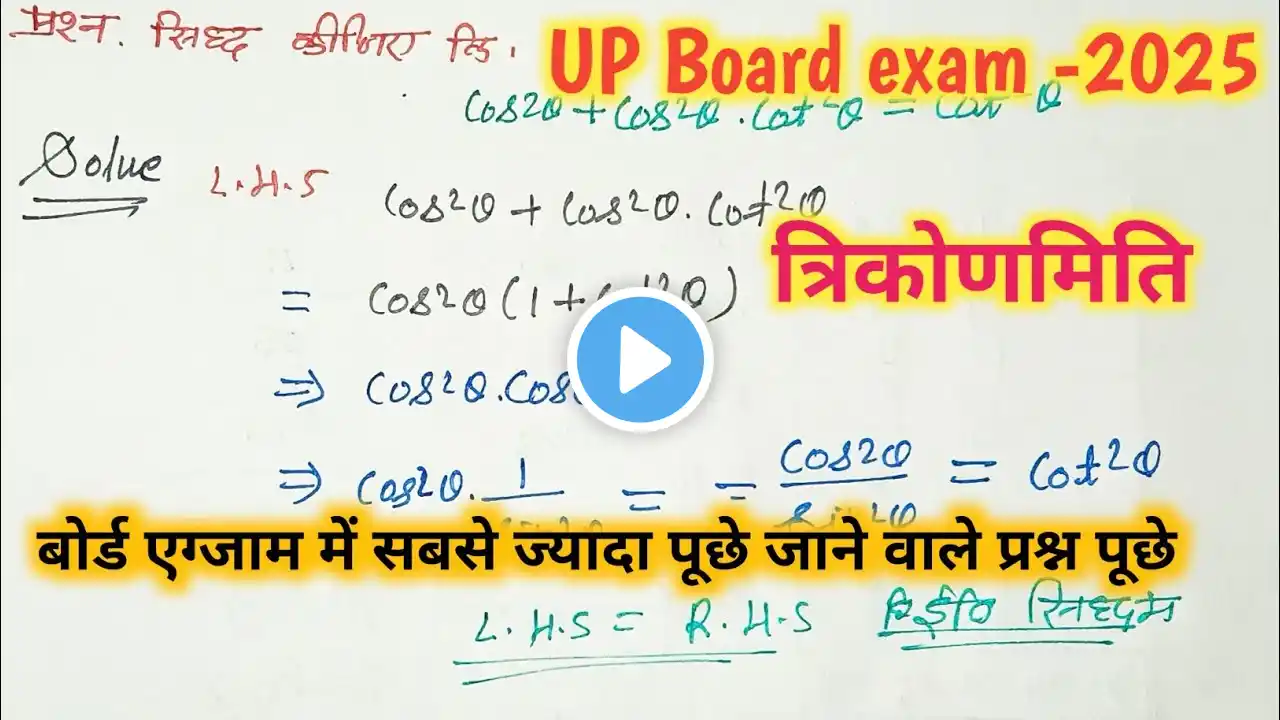 प्रश्न. सिध्द कीजिए कि.
UP Board exam -2025
cos2θ + cos2θ . cot2θ = cot2θ
Solve L.H.S cos2θ + cos2θ. cot2θ
त्रिकोणमिति
= cos2θ (1 + cot2θ)
⇒ cos2θ.cos
⇒ cos2θ. 1 = = cos2θ = cot2θ
sin2θ
बोर्ड एग्जाम में सबसे ज्यादा पूछे जाने वाले प्रश्न पूछे
L.H.S = R.H.S